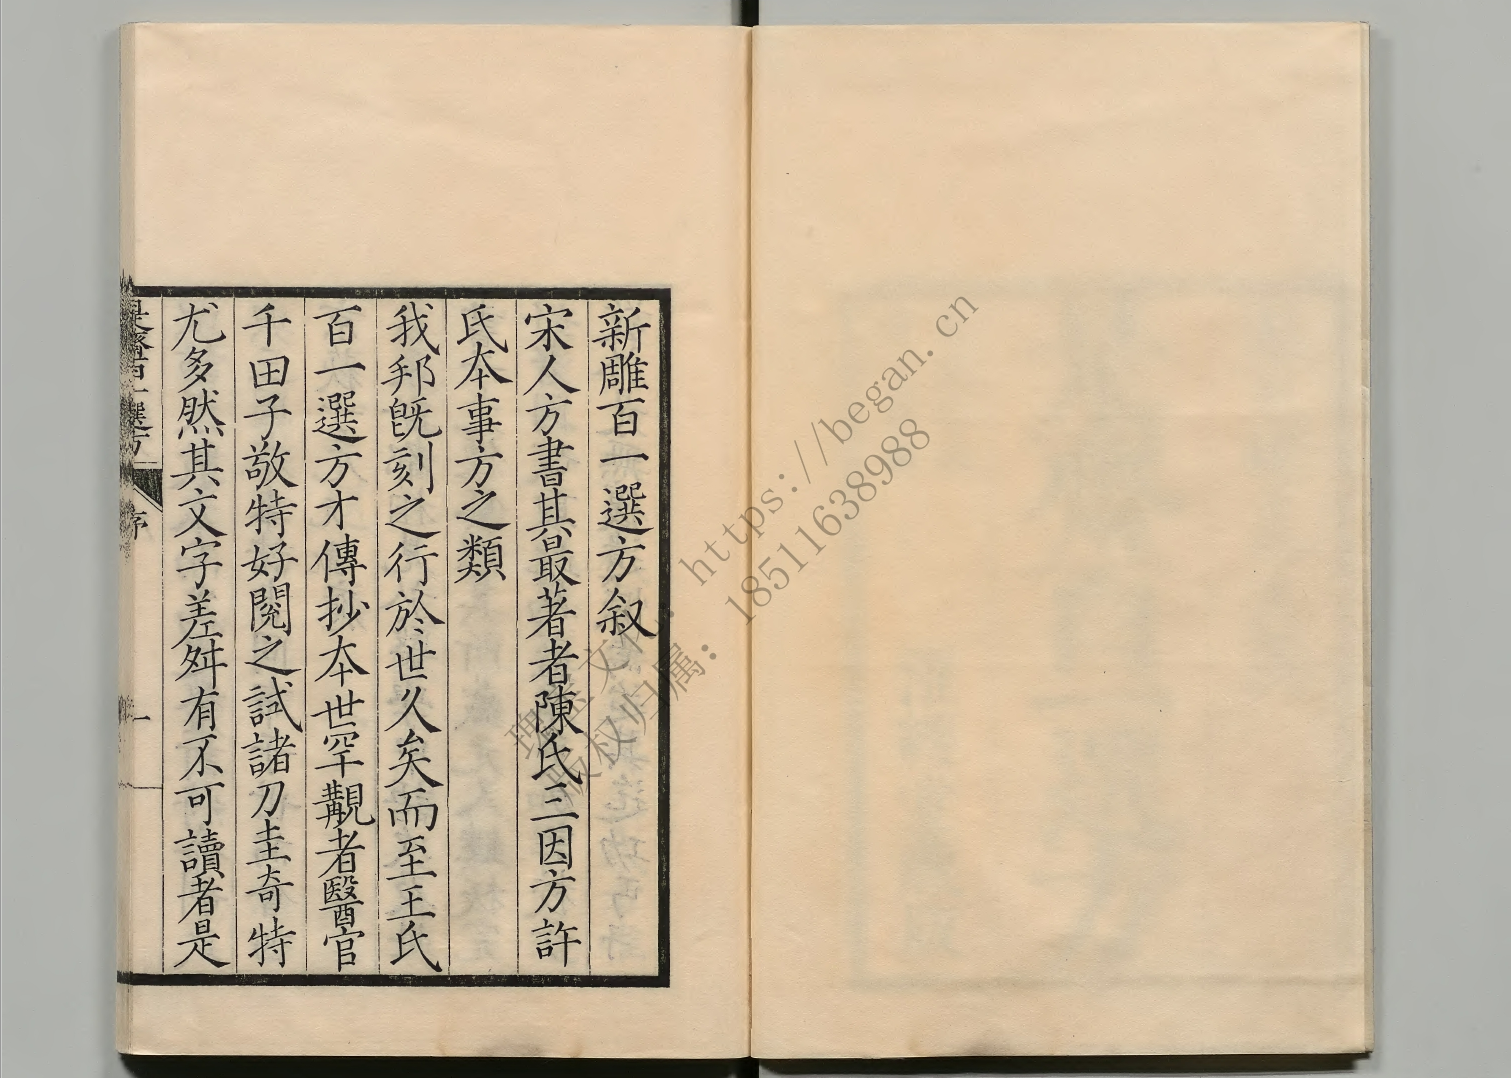 新雕百一選方叙
宋人方書其最著者陳氏三因方許
氏本事方之類
我邦既刻之行於世久矣而至王氏
百一選方才傳抄本世罕覯者醫官
千田子敬特好閱之試諸刀圭奇特
尤多然其文字差舛有不可讀者是
是齋百一選方
序
一
https://began.cn
版权归属：18511638988